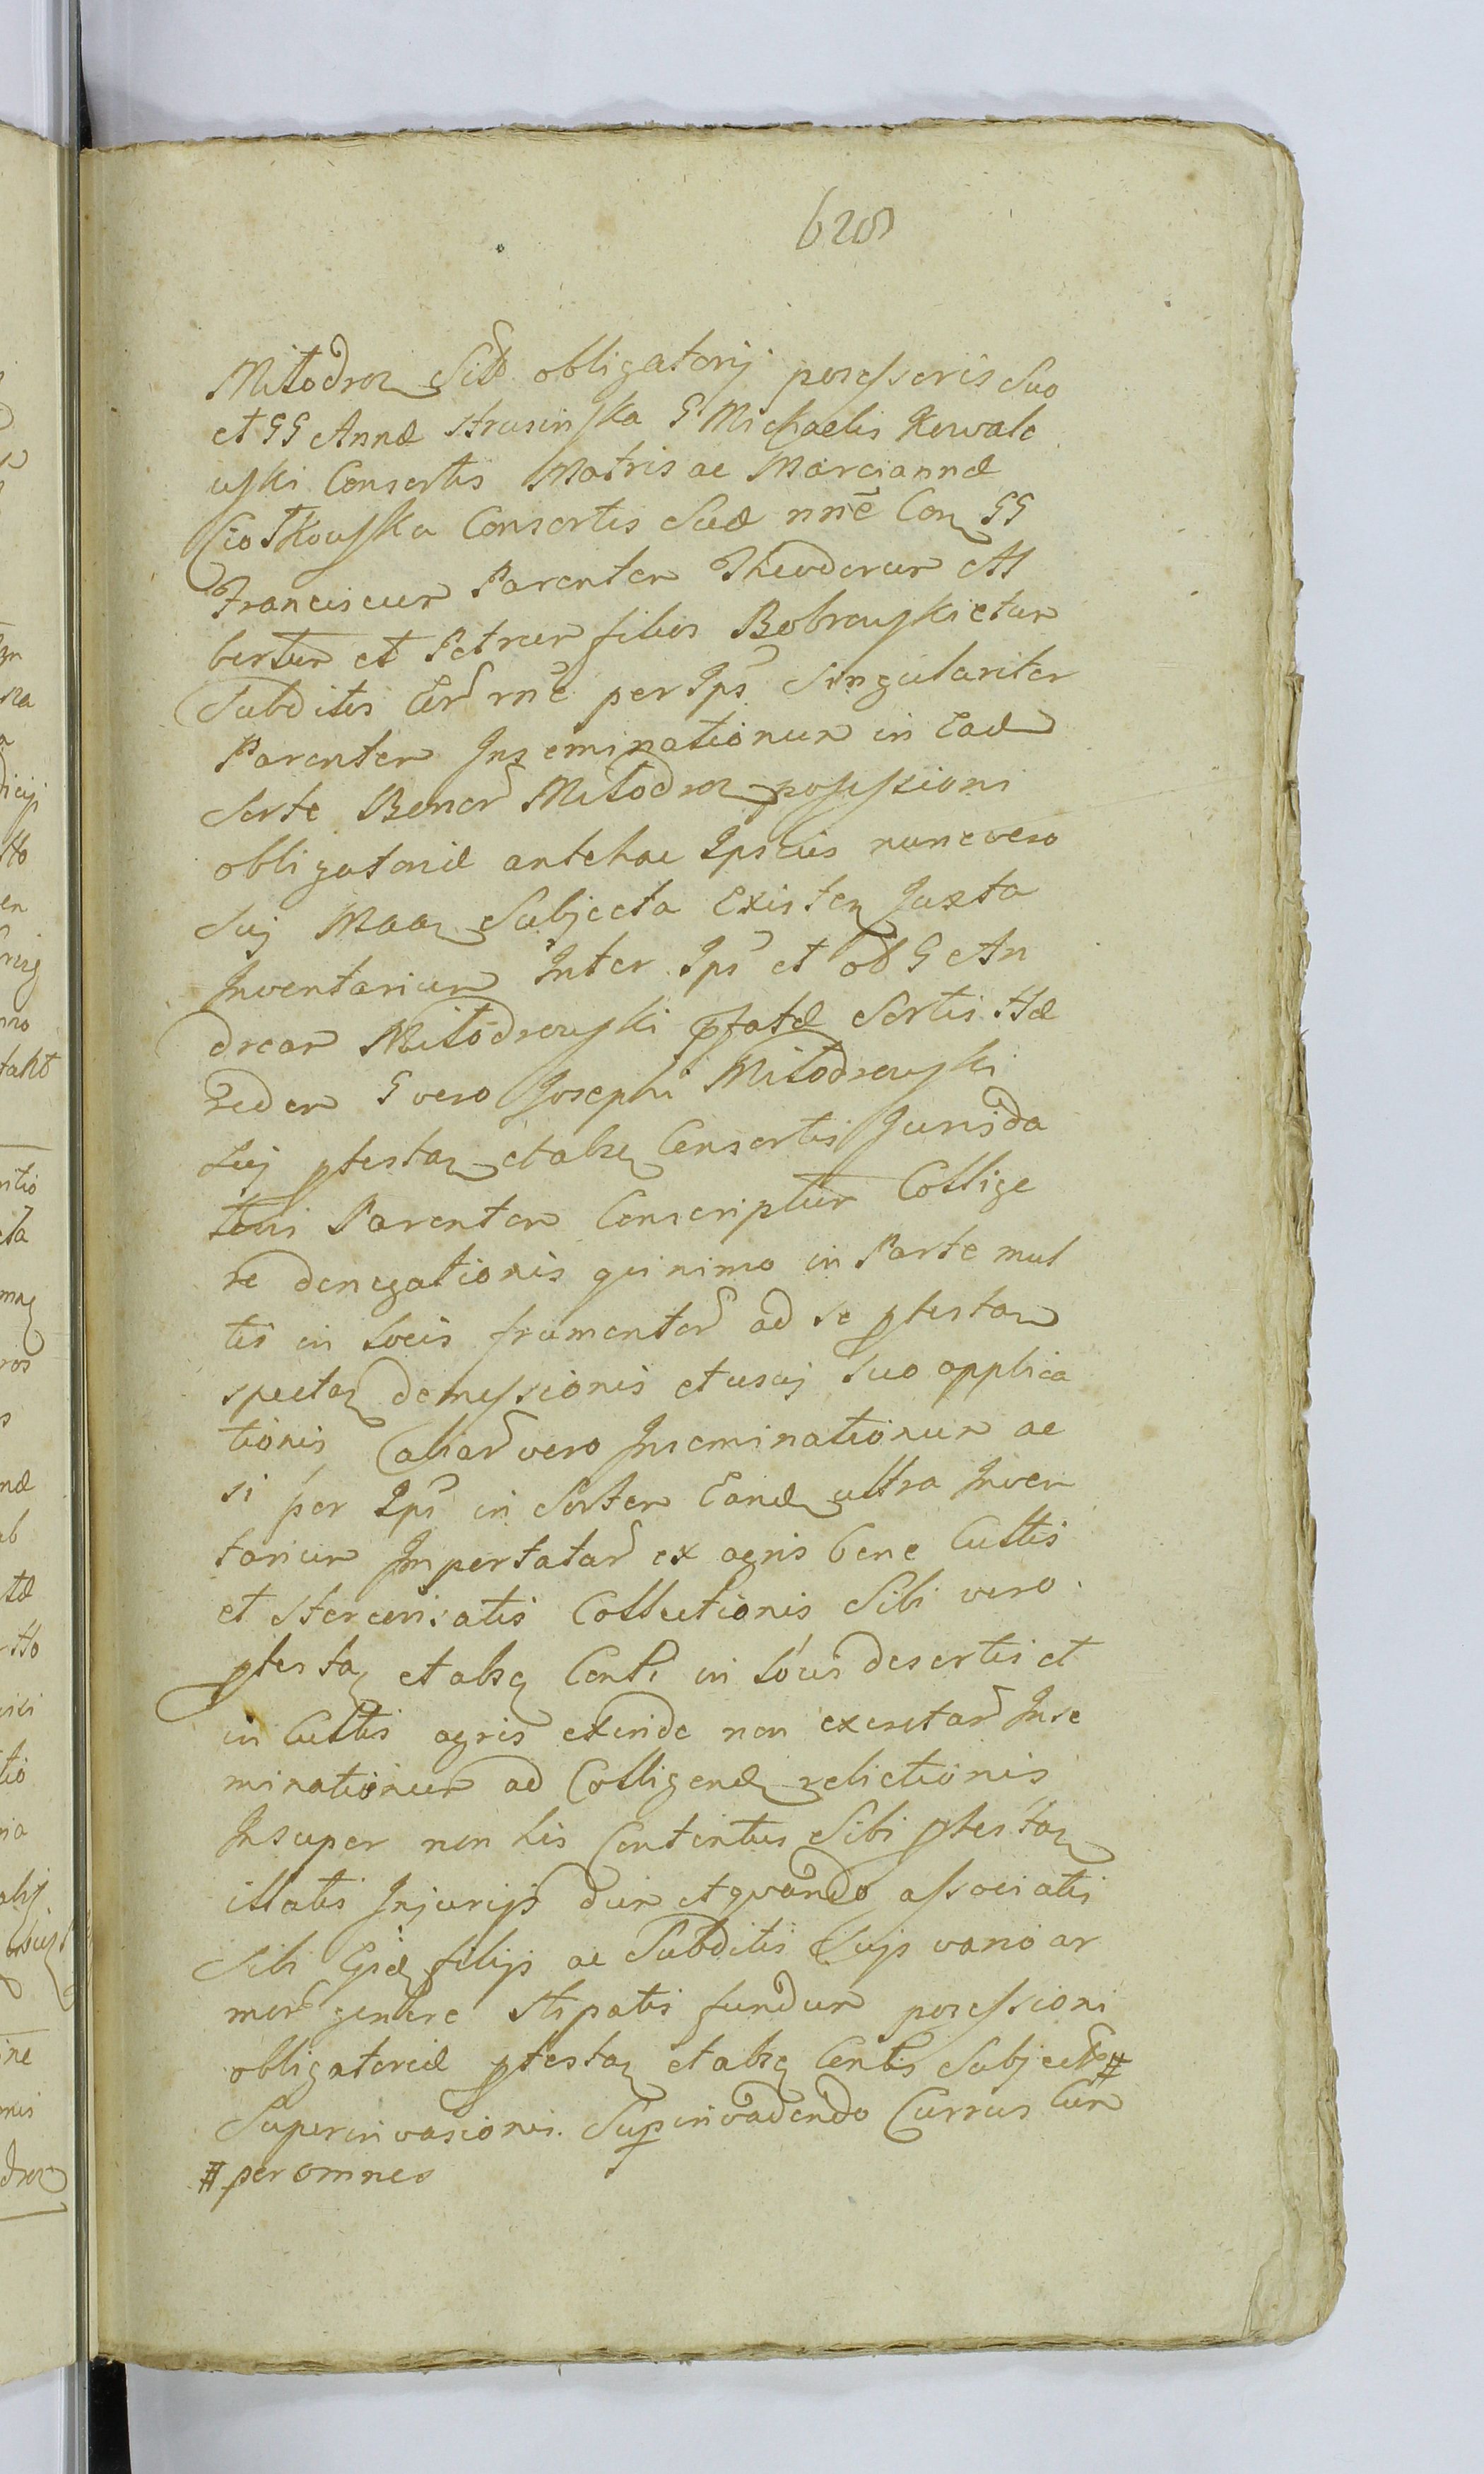 628
Miłodroz Sito obligatorij possessoris Suo
et GG Annæ Strusinska G Michaelis Kowale
wski Consortis Matris ac Mariannæ
Ciotkowska Consortis Suæ nnē Con GG
Franciscum Parentem Theodorum Al
bertum et Petrum filios Bobrowski etum
Subditis Eor rnē per Ips Singulariter
Parentem Inseminationum in Ead
Sorte Bonor Miłodroz possessioni
obligatoriæ antehac Ipsius nunc vero
Suj Maa Subjecta Existen Juxta
Inventarium Inter Ips et ob G An
dream Miłodrowski pfatæ Sortis Hæ
redem G vero Josephi Miłodrowski
Suj ptestaz et absq Consortis Juris da
toris Parentem Conscriptum Collige
re denegationis quinimo in Parte mul
tis in locis frumentor ad se ptestan
spectaz demessionis et usuj Suo applica
tionis Caliar vero Inseminationum ac
si per Ips in Sortem Eand ultra Inven
tarium Importatar ex agris bene Cultis
et stercorisatis Collectionis Sibi vero
ptestaz et absq Conti in locis desertis et
in Cultis agris exinde non exeretar Inse
minationum ad Colligend relictionis
Insuper non his Contentus Sibi ptestaz
illatis Injurijs dum et quando associatis
Sibi Ejsd filijs ac Subditis Sujs vario ar
mor genere Stipatis fundum possessioni
obligatoriæ ptestaz et absq Contis Subject #
Superinvasionis. Supinvadendo Currus Cum
# per omnes